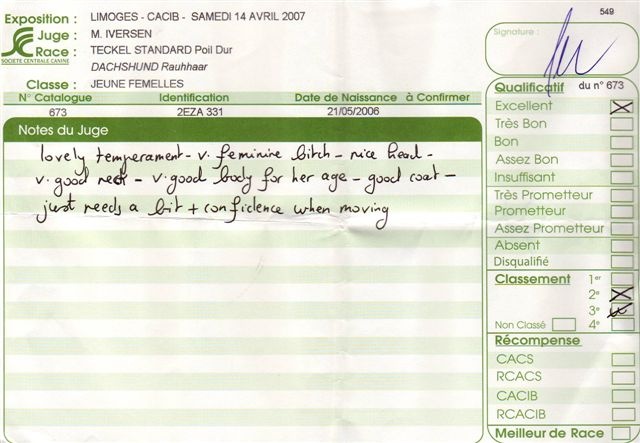 Exposition : LIMOGES - CACIB - SAMEDI 14 AVRIL 2007
549
Juge : M. IVERSEN
Signature :
Race : TECKEL STANDARD Poil Dur
SOCIETE CENTRALE CANINE
DACHSHUND Rauhhaar
Classe : JEUNE FEMELLES
N° Catalogue Identification Date de Naissance à Confirmer
673 2EZA 331 21/05/2006
Notes du Juge
lovely temperament - v. feminine bitch - nice head -
v. good neck - v. good body for her age - good coat -
just needs a bit + confidence when moving
Qualificatif du n° 673
Excellent X
Très Bon
Bon
Assez Bon
Insuffisant
Très Prometteur
Prometteur
Assez Prometteur
Absent
Disqualifié
Classement 1er
2e X
3e
Non Classé 4e
Récompense
CACS
RCACS
CACIB
RCACIB
Meilleur de Race